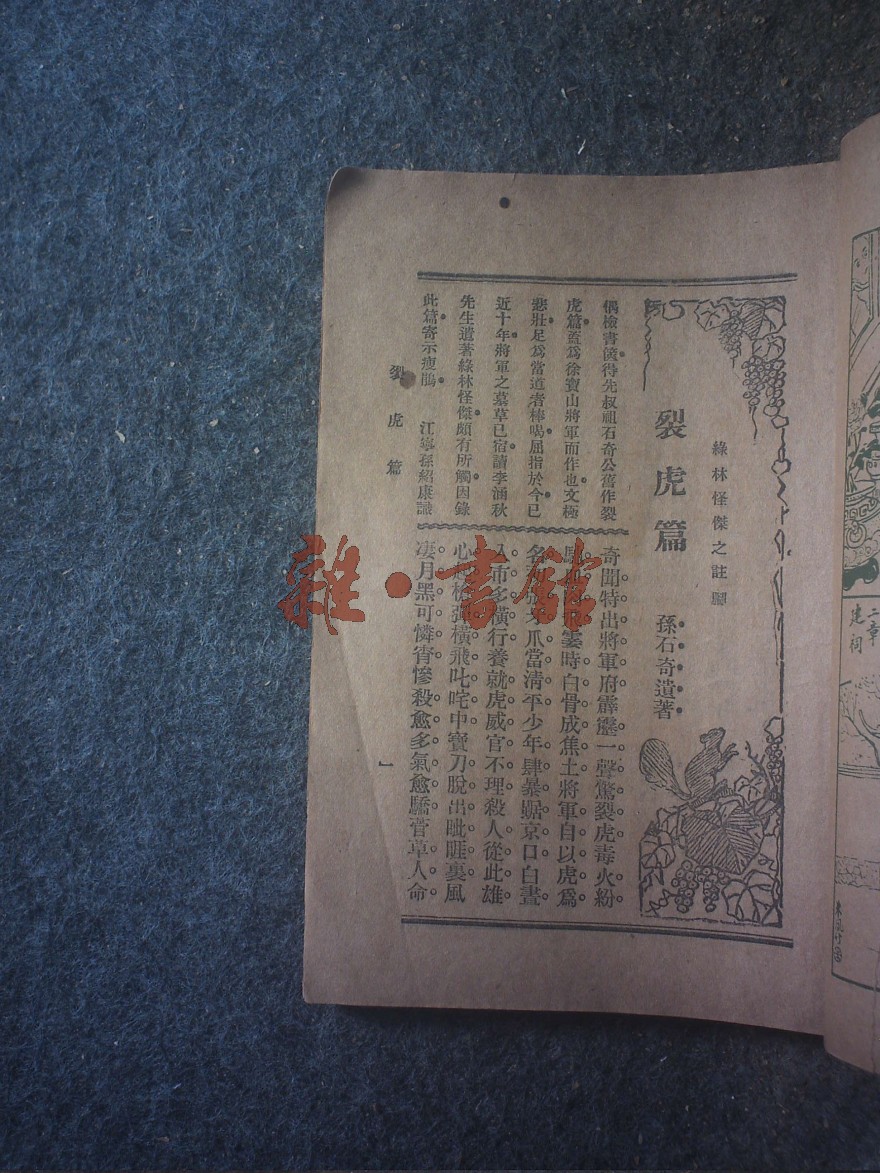 綠林怪傑之註腳
裂虎篇
孫石奇遺著
偶檢書篋得先叔祖石奇公舊作裂
虎篇蓋爲徐寶山將軍而作也文極
悲壯足爲當道者棒喝屈指於今已
近十年將軍之墓草已宿讀李涵秋
先生遺著綠林怪傑頗有所觸因錄
此篇寄示瘦鵑 江寧孫紹康識
奇聞特出將軍府霹靂一聲驚裂虎毒火紛
霎時白骨成焦土將軍自以虎爲
名 爪當清平少年肆暴踞京口白晝
入市多橫行養就虎威官不理殺人從此雄
心 橫飛叱咤中寶刀脫出眦睚裏風
淒月黑可憐宵慘殺愈多氣愈驕菅草人命
裂虎篇
一
雜·書館
二章
建祠